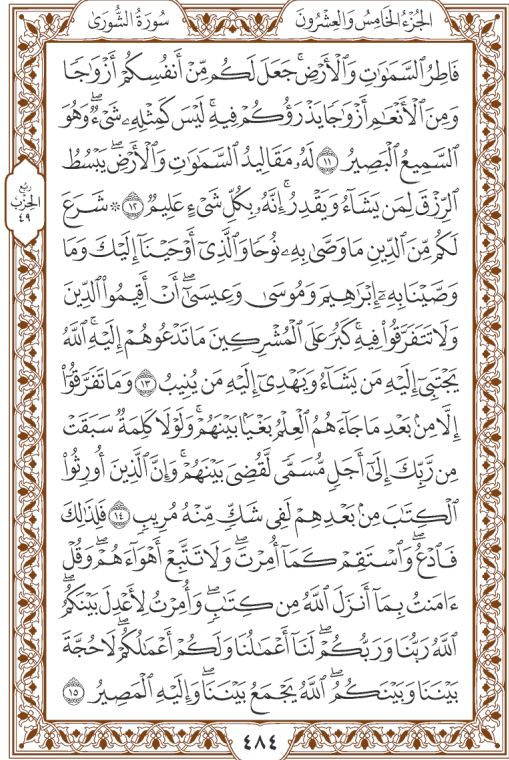 الجزء الخامس والعشرون
سورة الشورى
فَاطِرُ ٱلسَّمَٰوَٰتِ وَٱلۡأَرۡضِۚ جَعَلَ لَكُم مِّنۡ أَنفُسِكُمۡ أَزۡوَٰجٗا
وَمِنَ ٱلۡأَنۡعَٰمِ أَزۡوَٰجٗا يَذۡرَؤُكُمۡ فِيهِۚ لَيۡسَ كَمِثۡلِهِۦ شَيۡءٞۖ وَهُوَ
ٱلسَّمِيعُ ٱلۡبَصِيرُ ١١ لَهُۥ مَقَالِيدُ ٱلسَّمَٰوَٰتِ وَٱلۡأَرۡضِۖ يَبۡسُطُ
ٱلرِّزۡقَ لِمَن يَشَآءُ وَيَقۡدِرُۚ إِنَّهُۥ بِكُلِّ شَيۡءٍ عَلِيمٞ ١٢ ۞ شَرَعَ
لَكُم مِّنَ ٱلدِّينِ مَا وَصَّىٰ بِهِۦ نُوحٗا وَٱلَّذِيٓ أَوۡحَيۡنَآ إِلَيۡكَ وَمَا
وَصَّيۡنَا بِهِۦٓ إِبۡرَٰهِيمَ وَمُوسَىٰ وَعِيسَىٰٓۖ أَنۡ أَقِيمُواْ ٱلدِّينَ
وَلَا تَتَفَرَّقُواْ فِيهِۚ كَبُرَ عَلَى ٱلۡمُشۡرِكِينَ مَا تَدۡعُوهُمۡ إِلَيۡهِۚ ٱللَّهُ
يَجۡتَبِيٓ إِلَيۡهِ مَن يَشَآءُ وَيَهۡدِيٓ إِلَيۡهِ مَن يُنِيبُ ١٣ وَمَا تَفَرَّقُوٓاْ
إِلَّا مِنۢ بَعۡدِ مَا جَآءَهُمُ ٱلۡعِلۡمُ بَغۡيَۢا بَيۡنَهُمۡۚ وَلَوۡلَا كَلِمَةٞ سَبَقَتۡ
مِن رَّبِّكَ إِلَىٰٓ أَجَلٖ مُّسَمّٗى لَّقُضِيَ بَيۡنَهُمۡۚ وَإِنَّ ٱلَّذِينَ أُورِثُواْ
ٱلۡكِتَٰبَ مِنۢ بَعۡدِهِمۡ لَفِي شَكّٖ مِّنۡهُ مُرِيبٖ ١٤ فَلِذَٰلِكَ
فَٱدۡعُۖ وَٱسۡتَقِمۡ كَمَآ أُمِرۡتَۖ وَلَا تَتَّبِعۡ أَهۡوَآءَهُمۡۖ وَقُلۡ
ءَامَنتُ بِمَآ أَنزَلَ ٱللَّهُ مِن كِتَٰبٖۖ وَأُمِرۡتُ لِأَعۡدِلَ بَيۡنَكُمُۖ
ٱللَّهُ رَبُّنَا وَرَبُّكُمۡۖ لَنَآ أَعۡمَٰلُنَا وَلَكُمۡ أَعۡمَٰلُكُمۡۖ لَا حُجَّةَ
بَيۡنَنَا وَبَيۡنَكُمُۖ ٱللَّهُ يَجۡمَعُ بَيۡنَنَاۖ وَإِلَيۡهِ ٱلۡمَصِيرُ ١٥
ربع
الحزب
٤٩
٤٨٤